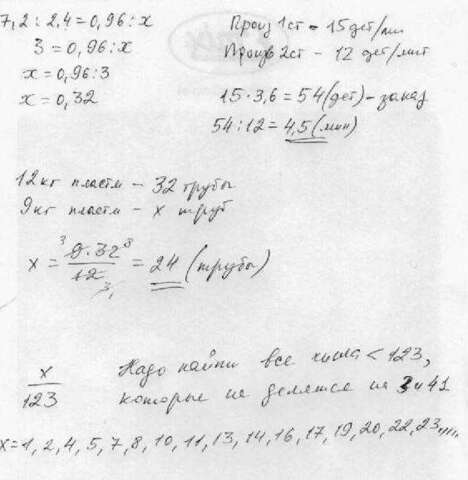 7,2 : 2,4 = 0,96 : x
3 = 0,96 : x
x = 0,96 : 3
x = 0,32
Произ 1ст - 15 дет/мин
Произв 2ст - 12 дет/мин
15 · 3,6 = 54 (дет) - заказ
54 : 12 = 4,5 (мин)
12 кг пластм - 32 трубы
9 кг пластм - x труб
x = 9·32 / 12 = 24 (трубы)
3 8
3
x / 123
Надо найти все числа < 123,
которые не делятся на 3 и 41
x = 1, 2, 4, 5, 7, 8, 10, 11, 13, 14, 16, 17, 19, 20, 22, 23....